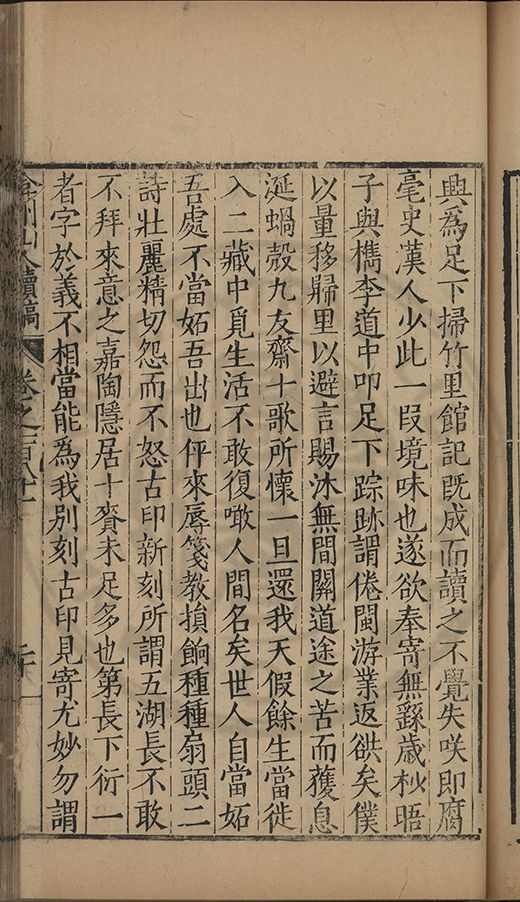 興為足下掃竹里館記既成而讀之不覺失咲即腐
毫史漢人少此一叚境味也遂欲奉寄無繇歲杪晤
子與檇李道中叩足下踪跡謂倦閩游業返欤矣僕
以量移歸里以避言賜沐無間關道途之苦而獲息
涎蝸殼九友齋十歌所懷一旦還我天假餘生當徙
入二藏中覓生活不敢復噉人間名矣世人自當妬
吾處不當妬吾出也伻來辱箋教損餉種種扇頭二
詩壯麗精切怨而不怒古印新刻所謂五湖長不敢
不拜來意之嘉陶隱居十賚未足多也第長下衍一
者字於義不相當能為我別刻古印見寄尤妙勿謂
弇州山人續稿 卷之一百八十一